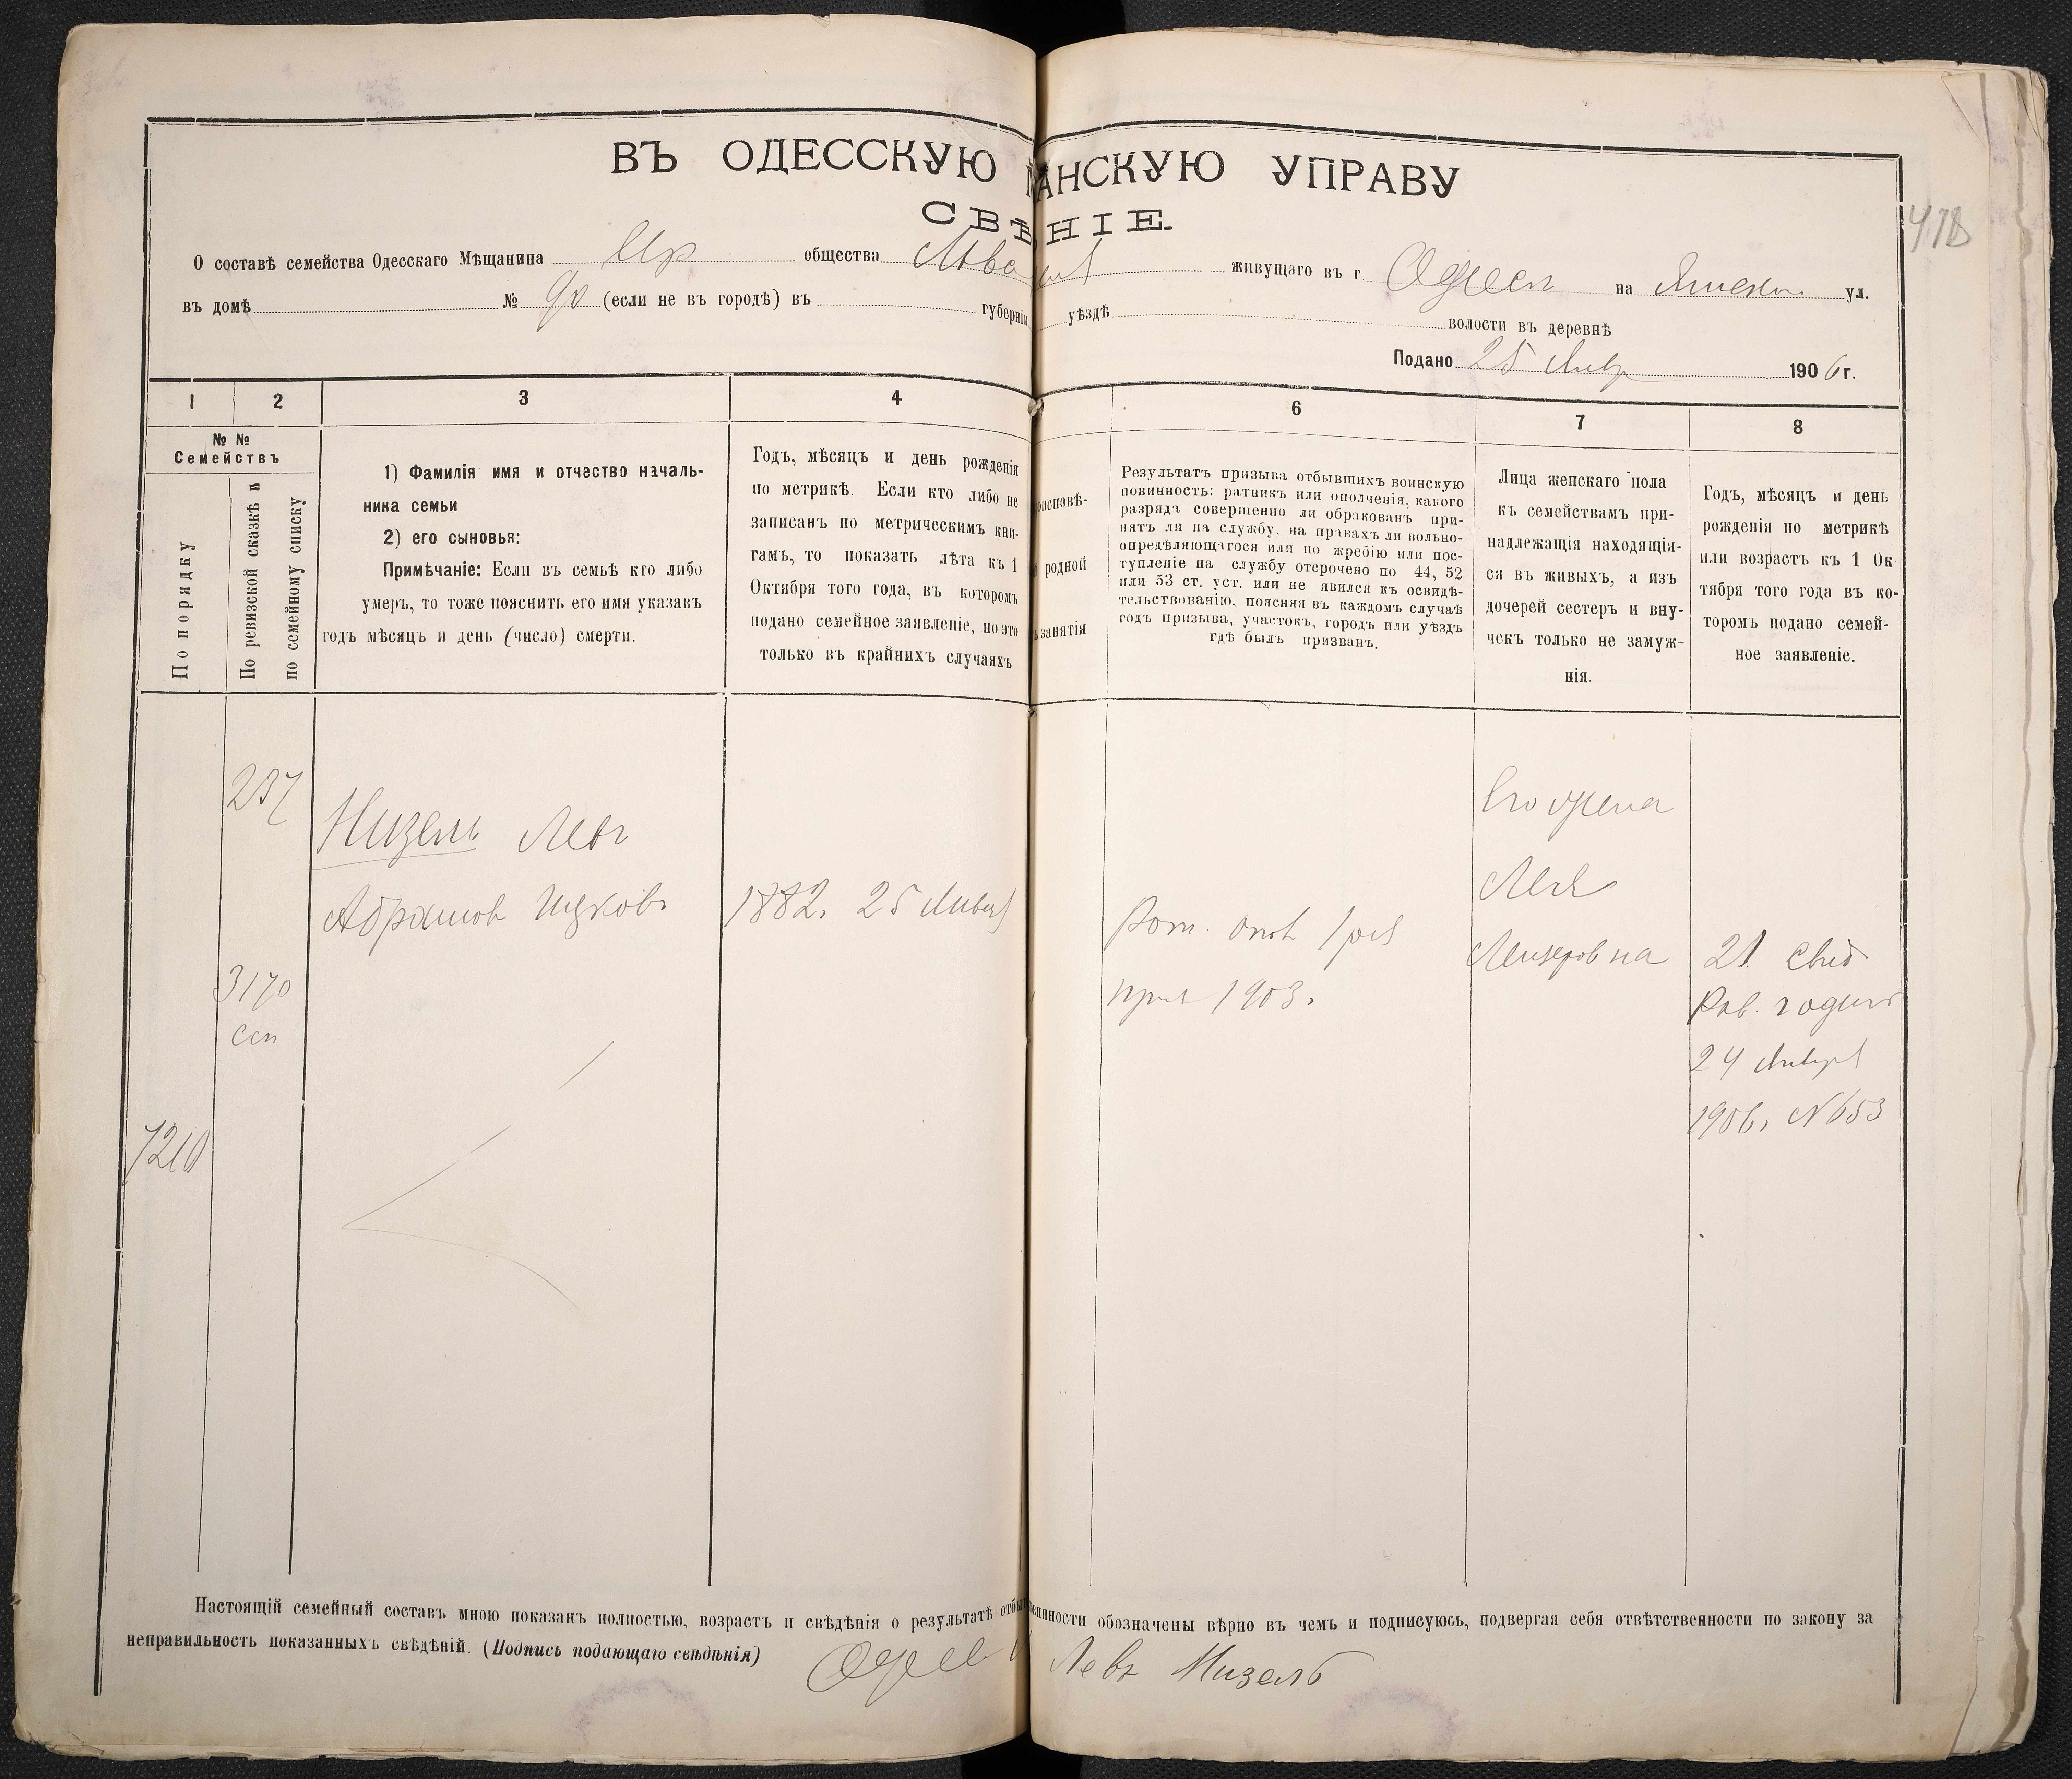 ВЪ ОДЕССКУЮ АНСКУЮ УПРАВУ
СВѢНІЕ.
418
О составѣ семейства Одесскаго Мѣщанина общества живущаго въ г. Одессѣ на ул.
въ домѣ № 90 (если не въ городѣ) въ губерніи уѣздѣ волости въ деревнѣ
Подано 25 Янв 1906 г.
1 2 3 4 6 7 8
№ №
Семействъ
По порядку
По ревизской сказкѣ и
по семейному списку
1) Фамилія имя и отчество началь-
ника семьи
2) его сыновья:
Примѣчаніе: Если въ семьѣ кто либо
умеръ, то тоже пояснить его имя указавъ
годъ мѣсяцъ и день (число) смерти.
Годъ, мѣсяцъ и день рожденія
по метрикѣ. Если кто либо не
записанъ по метрическимъ кни-
гамъ, то показать лѣта къ 1
Октября того года, въ которомъ
подано семейное заявленіе, но это
только въ крайнихъ случаяхъ
оисповѣ-
родной
занятія
Результатъ призыва отбывшихъ воинскую
повинность: ратникъ или ополченія, какого
разряда совершенно ли обракованъ при-
нятъ ли на службу, на правахъ ли вольно-
опредѣляющагося или по жребію или пос-
тупленіе на службу отсрочено по 44, 52
или 53 ст. уст. или не явился къ освидѣ-
тельствованію, поясняя въ каждомъ случаѣ
годъ призыва, участокъ, городъ или уѣздъ
гдѣ былъ призванъ.
Лица женскаго пола
къ семействамъ при-
надлежащія находящія-
ся въ живыхъ, а изъ
дочерей сестеръ и вну-
чекъ только не замуж-
нія.
Годъ, мѣсяцъ и день
рожденія по метрикѣ
или возрастъ къ 1 Ок
тября того года въ ко-
торомъ подано семей-
ное заявленіе.
237
Низель Левъ
Абрамовъ Ицковъ
1882. 25 Января
3170
7210
Рат. опол 1 раз
1903.
Его жена
Лея
Лейзеровна
21. свид
Рав. годин
24 Января
1906. №653
Настоящій семейный составъ мною показанъ полностью, возрастъ и свѣдѣнія о результатѣ отбы винности обозначены вѣрно въ чемъ и подписуюсь, подвергая себя отвѣтственности по закону за
неправильность показанныхъ свѣдѣній. (Подпись подающаго свѣдѣнія)
Левъ Низель